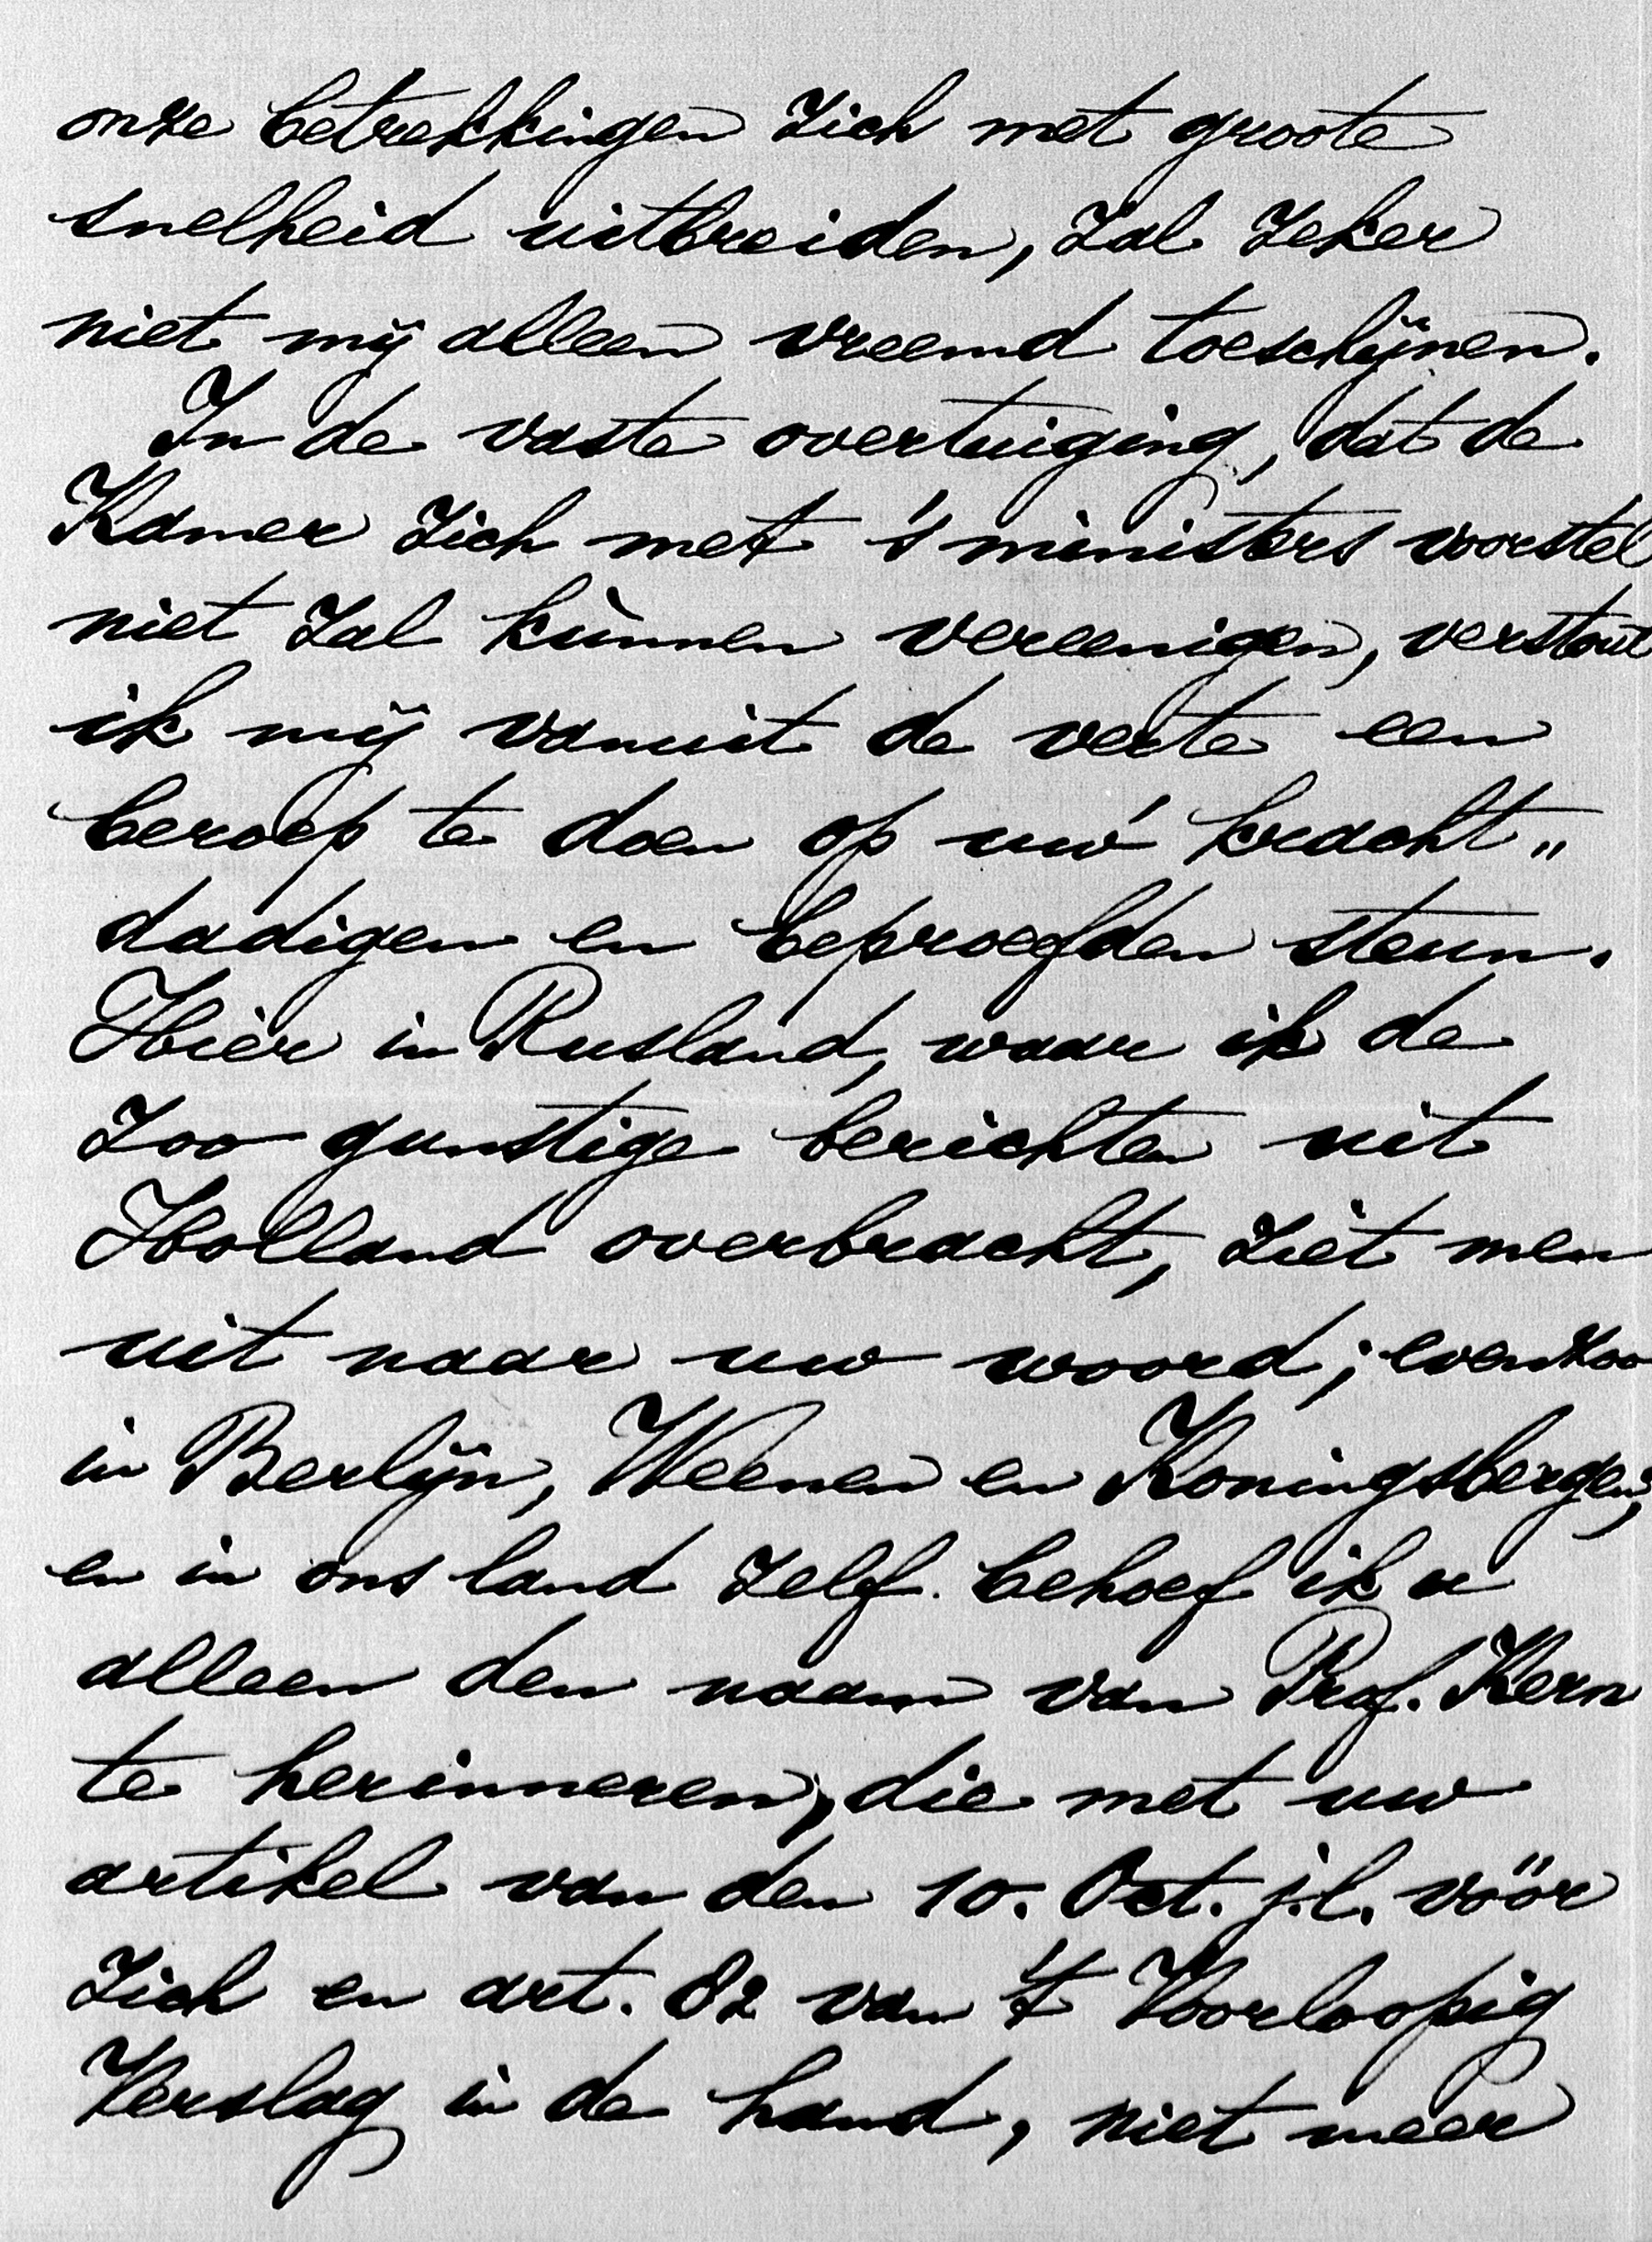 onze betrekkingen zich met groote
snelheid uitbreiden, zal zeker
niet mij alleen vreemd toeschijnen.
In de vaste overtuiging, dat de
Kamer zich met 's ministers voorstel
niet zal kùnnen vereenigen, verstout
ik mij vanuit de verte een
beroep te doen op uw kracht„
dadigen en beproefden steun.
Hier in Rusland, waar ik de
zoo gunstige berichten uit
Holland overbracht, ziet men
uit naar uw woord; evenzoo
in Berlijn, Weenen en Koningsbergen;
en in ons land zelf behoef ik u
alleen den naam van Prof. Kern
te herinneren, die met uw
artikel van den 10. Oct. j.l. vöör
zich en art. 82 van 't Voorloopig
Verslag in de hand, niet meer